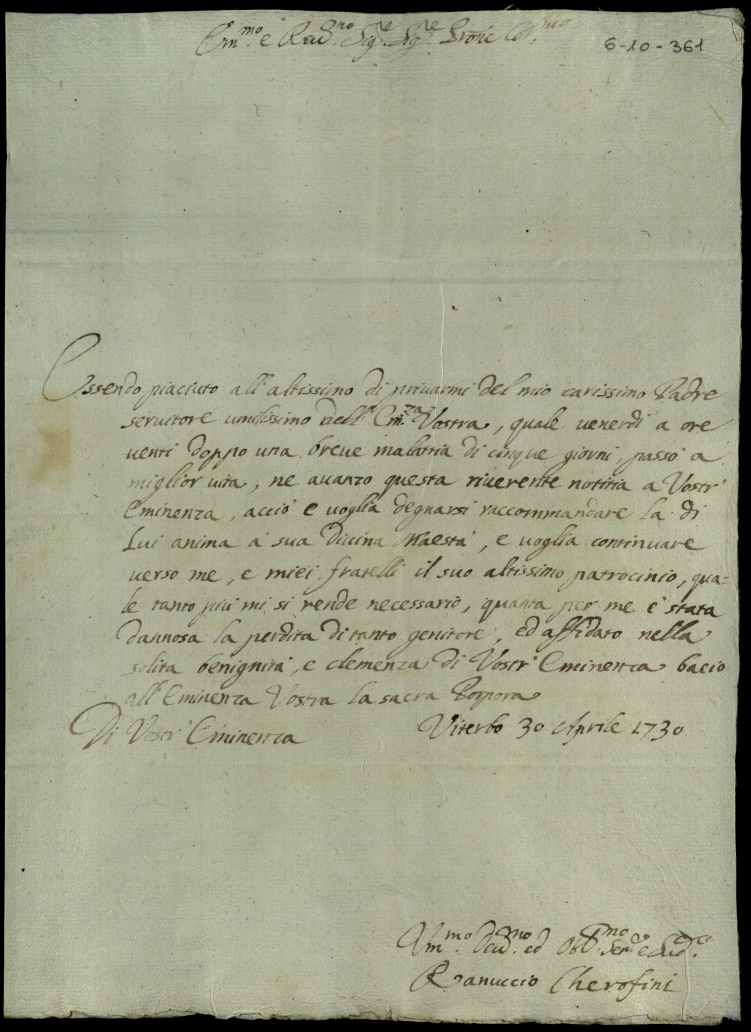 Em.mo e Reu.mo Sig.re Sig.re Prone Col.mo
6-10-361
Essendo piaciuto all'altissimo di priuarmi del mio carissimo Padre
seruitore umilissimo dell'Em.za Vostra, quale venerdì a ore
venti doppo una breue malattia di cinque giorni, passò a
miglior vita, ne auanzo questa riuerente notitia a Vostr'
Eminenza, acciò e voglia degnarsi raccommandare la di
Lui anima a sua Diuina Maestà, e voglia continuare
verso me, e miei fratelli il suo altissimo patrocinio, qua-
le tanto più mi si rende necessario, quanta per me è stata
dannosa la perdita di tanto genitore, ed affidato nella
solita benignità, e clemenza di Vostr'Eminenza bacio
all'Eminenza Vostra la sacra Porpora
Di Vostr'Eminenza Viterbo 30 Aprile 1730
Um.mo Deu.mo ed Obb.mo
Ranuccio Cherofini